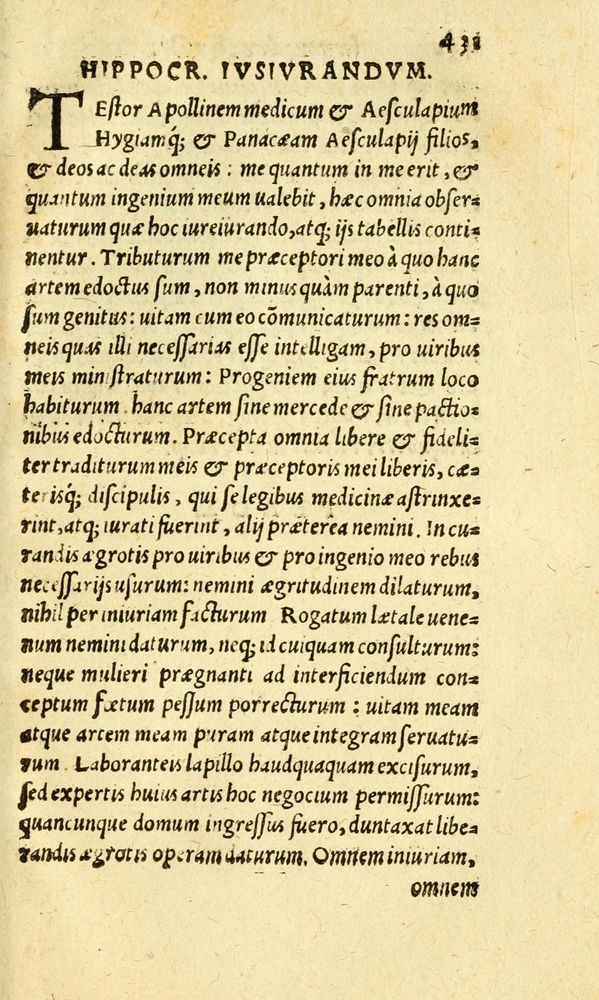 431
HIPPOCR. IVSIVRANDVM.
TEstor Apollinem medicum & Aesculapium
Hygiamq́; & Panacæam Aesculapij filios,
& deos ac deas omneis: me quantum in me erit, &
quantum ingenium meum ualebit, hæc omnia obser=
uaturum quæ hoc iureiurando, atq; ijs tabellis conti=
nentur. Tributurum me præceptori meo à quo hanc
artem edoctus sum, non minus quàm parenti, à quo
sum genitus: uitam cum eo cõmunicaturum: res om=
neis quas illi necessarias esse intelligam, pro uiribus
meis ministraturum: Progeniem eius fratrum loco
habiturum hanc artem sine mercede & sine pactio=
nibus edocturum. Præcepta omnia libere & fideli=
ter traditurum meis & præceptoris mei liberis, cæ=
terisq́; discipulis, qui se legibus medicinæ astrinxe=
rint, atq; iurati fuerint, alij præterea nemini. In cu=
randis ægrotis pro uiribus & pro ingenio meo rebus
necessarijs usurum: nemini ægritudinem dilaturum,
nihil per iniuriam facturum Rogatum lætale uene=
num nemini daturum, neq; id cuiquam consulturum:
neque mulieri prægnanti ad interficiendum con=
ceptum fœtum pessum porrecturum: uitam meam
atque artem meam puram atque integram seruatu=
rum. Laboranteis lapillo haudquaquam excisurum,
sed expertis huius artis hoc negocium permissurum:
quancunque domum ingressus fuero, duntaxat libe=
randis ægrotis operam daturum. Omnem iniuriam,
omnem